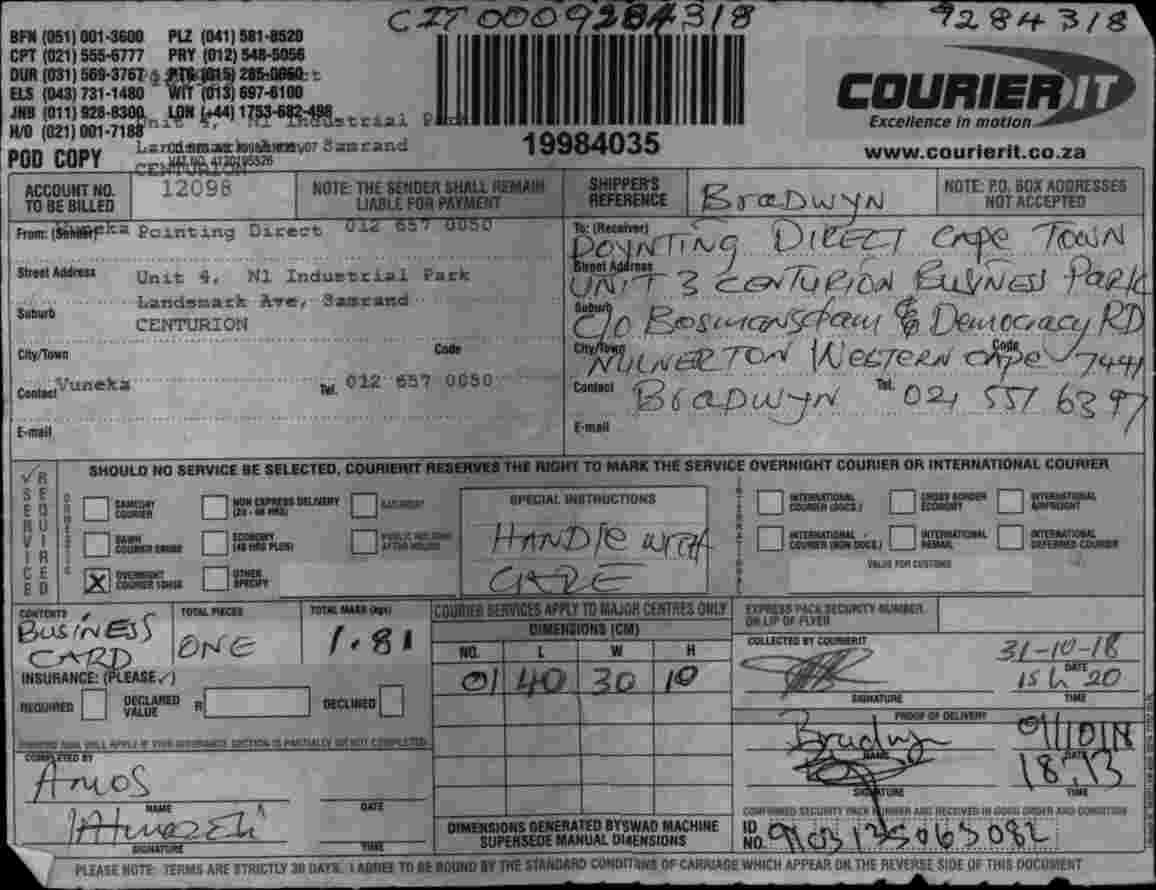 CIT00009284318
9284318
BFN (051) 001-3600 PLZ (041) 581-8520
CPT (021) 555-6777 PRY (012) 548-5056
DUR (031) 569-3767 PTG (015) 285-0060
ELS (043) 731-1480 WIT (013) 697-6100
JNB (011) 928-8300 LON (+44) 1753-682-498
H/O (021) 001-7188
Unit 4, N1 Industrial Park
POD COPY
Samrand
CENTURION
19984035
COURIER IT
Excellence in motion
www.courierit.co.za
ACCOUNT NO. TO BE BILLED
12098
NOTE: THE SENDER SHALL REMAIN LIABLE FOR PAYMENT
SHIPPER'S REFERENCE
BraDWYN
NOTE: P.O. BOX ADDRESSES NOT ACCEPTED
From: (Sender) Vuneka Pointing Direct 012 657 0050
Street Address Unit 4, N1 Industrial Park
Landsmark Ave, Samrand
Suburb CENTURION
City/Town Code
Contact Vuneka Tel. 012 657 0050
E-mail
To: (Receiver) POYNTING DIRECT Cape TOWN
Street Address UNIT 3 CENTURION BUSINESS PARK
Suburb C/O Bosmansdam & Democracy RD
City/Town MILNERTON WESTERN CAPe Code 7441
Contact BraDWYN Tel. 021 551 6397
E-mail
SHOULD NO SERVICE BE SELECTED, COURIERIT RESERVES THE RIGHT TO MARK THE SERVICE OVERNIGHT COURIER OR INTERNATIONAL COURIER
SERVICE REQUIRED
DOMESTIC
SAMEDAY COURIER
NON EXPRESS DELIVERY
SATURDAY
DAWN COURIER
ECONOMY (48 HRS PLUS)
PUBLIC HOLIDAY AFTER HOURS
X OVERNIGHT COURIER
OTHER SPECIFY
SPECIAL INSTRUCTIONS
HANDle WITH
CARE
INTERNATIONAL
INTERNATIONAL COURIER (DOCS.)
CROSS BORDER ECONOMY
INTERNATIONAL AIRFREIGHT
INTERNATIONAL COURIER (NON DOCS.)
INTERNATIONAL REMAIL
INTERNATIONAL DEFERRED COURIER
VALUE FOR CUSTOMS
CONTENTS
BUSINESS CARD
TOTAL PIECES
ONE
TOTAL MASS (kgs)
1.81
COURIER SERVICES APPLY TO MAJOR CENTRES ONLY
DIMENSIONS (CM)
NO. L W H
01 40 30 10
INSURANCE: (PLEASE ✓)
REQUIRED
DECLARED VALUE R
DECLINED
COMPLETED BY
Amos
NAME DATE
SIGNATURE TIME
DIMENSIONS GENERATED BYSWAD MACHINE SUPERSEDE MANUAL DIMENSIONS
EXPRESS PACK SECURITY NUMBER ON LIP OF FLYER
COLLECTED BY COURIERIT
31-10-18
DATE
15h20
SIGNATURE TIME
PROOF OF DELIVERY
Bradwyn
NAME DATE
18:13
SIGNATURE TIME
CONFIRMED SECURITY PACK NUMBER AND RECEIVED IN GOOD ORDER AND CONDITION
ID NO.
PLEASE NOTE: TERMS ARE STRICTLY 30 DAYS. I AGREE TO BE BOUND BY THE STANDARD CONDITIONS OF CARRIAGE WHICH APPEAR ON THE REVERSE SIDE OF THIS DOCUMENT